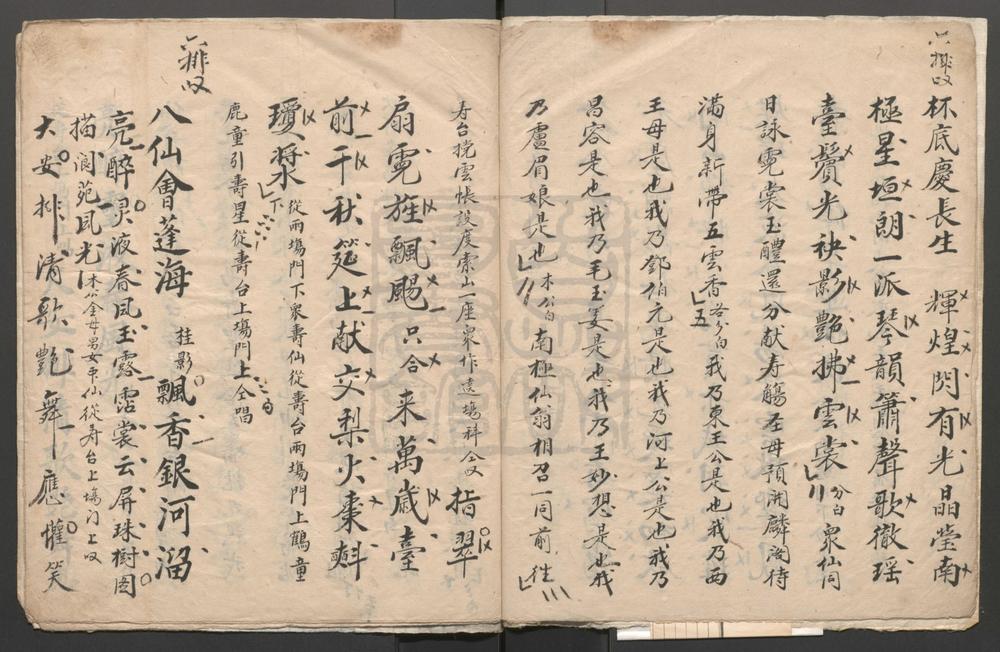 杯底慶長生　輝煌閃有光晶瑩南
極星垣朗一派琴韻簫聲歌徹瑶
臺鬢光袂影艷拂雲裳分白衆仙同
日詠霓裳玉醴還分献寿觴圣母預開麟海待
滿身新帶五雲香各分白我乃東王公是也我乃西
王母是也我乃鄧伯元是也我乃河上公是也我乃
昌容是也我乃毛玉姜是也我乃王妙想是也我
乃盧眉娘是也木公白南極仙翁相召一同前往
寿台挠雲帳設度索山一座衆作遶場科仝㕥指翠
扇霓旌飄颺只合来萬歲臺
前千秋筵上献交梨火棗斟
瓊漿下從兩塲門下衆壽仙從壽台兩塲門上鶴童
鹿童引壽星從壽台上塲門上仝唱
八仙會蓬海　桂影飄香銀河溜
亮醉灵液春風玉露霑裳云屏珠樹图
描浪苑風光木公金母男女衆仙從寿台上塲门上㕥
大安排清歌艷舞應懽笑